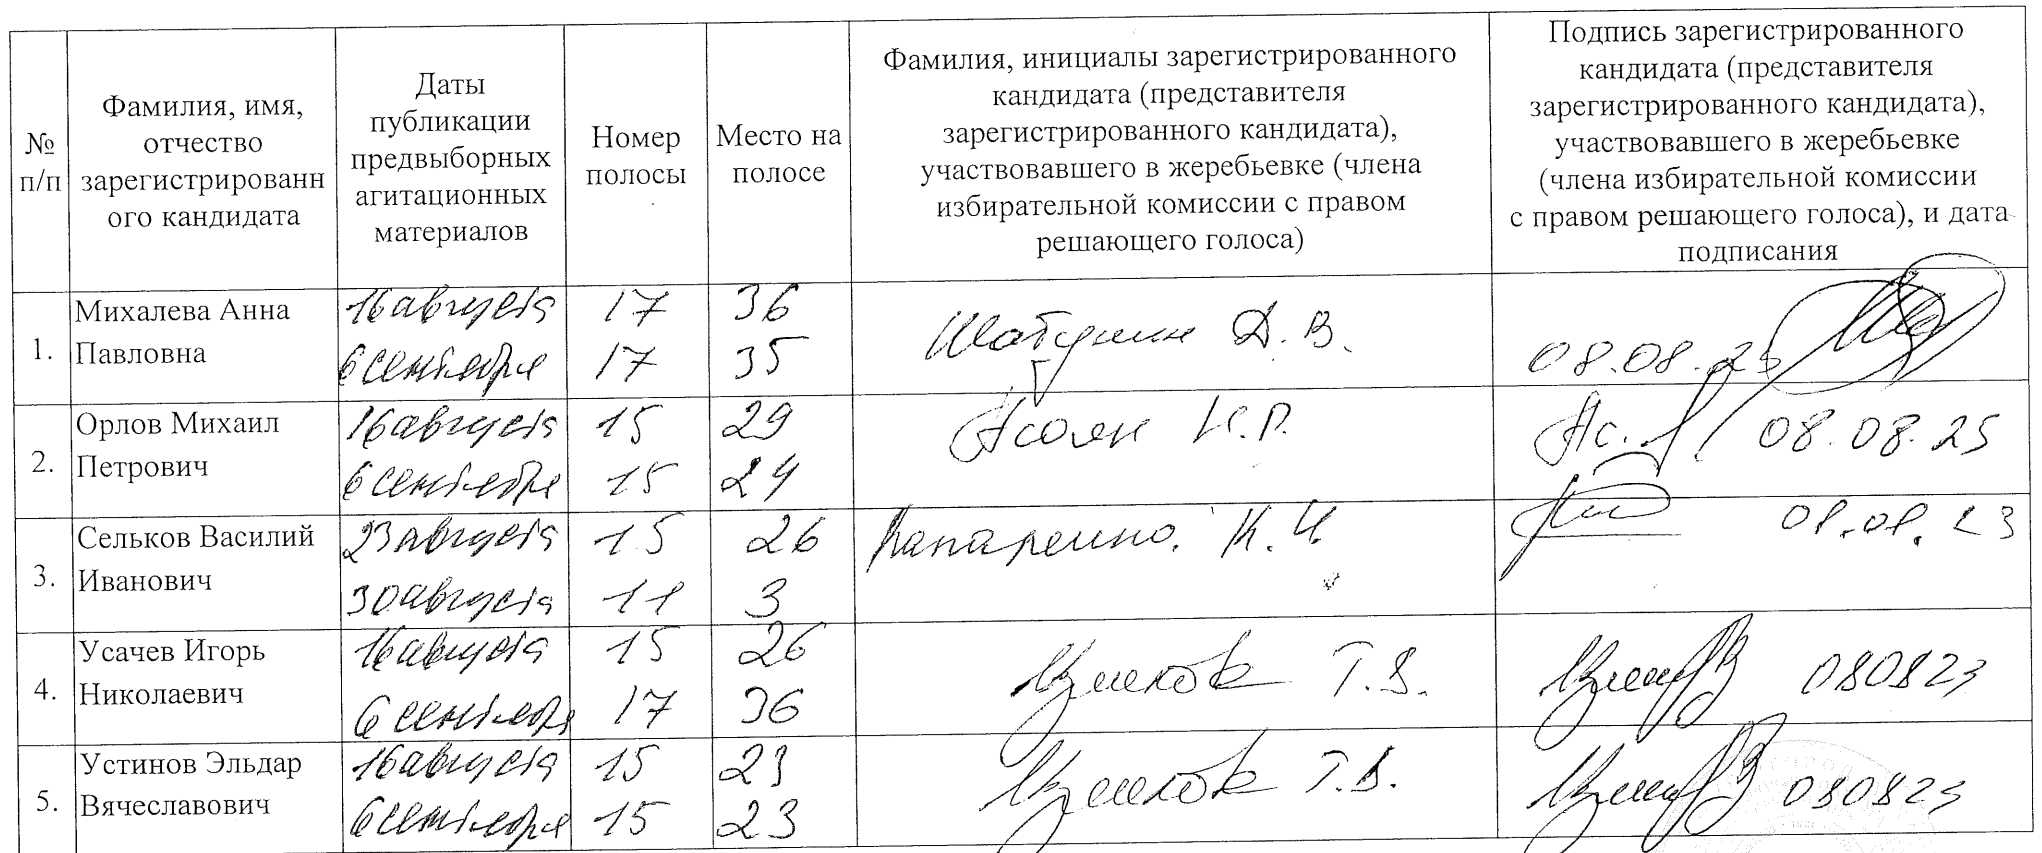 № п/п
Фамилия, имя,
отчество
зарегистрированн
ого кандидата
Даты
публикации
предвыборных
агитационных
материалов
Номер
полосы
Место на
полосе
Фамилия, инициалы зарегистрированного
кандидата (представителя
зарегистрированного кандидата),
участвовавшего в жеребьевке (члена
избирательной комиссии с правом
решающего голоса)
Подпись зарегистрированного
кандидата (представителя
зарегистрированного кандидата),
участвовавшего в жеребьевке
(члена избирательной комиссии
с правом решающего голоса), и дата
подписания
1.
Михалева Анна
Павловна
16 августа 17 36
6 сентября 17 35
Д. В.
08.08.25
2.
Орлов Михаил
Петрович
16 августа 15 29
6 сентября 15 24
Асоян
08.08.25
3.
Сельков Василий
Иванович
23 августа 15 26
30 августа 11 3
08.08.23
4.
Усачев Игорь
Николаевич
16 августа 15 26
6 сентября 17 36
Т.В.
080823
5.
Устинов Эльдар
Вячеславович
16 августа 15 23
6 сентября 15 23
Т.В.
080823